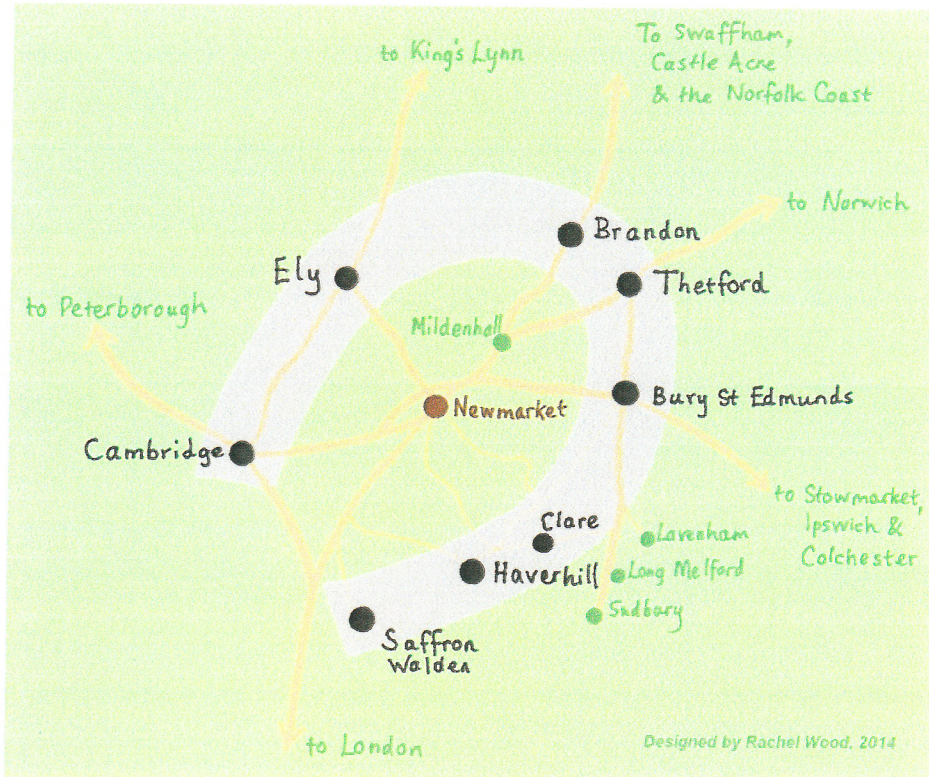 to King's Lynn
To Swaffham,
Castle Acre
& the Norfolk Coast
to Norwich
Brandon
Ely
Thetford
to Peterborough
Mildenhall
Bury St Edmunds
Newmarket
Cambridge
to Stowmarket,
Ipswich &
Colchester
Clare
Lavenham
Haverhill
Long Melford
Sudbury
Saffron
Walden
to London
Designed by Rachel Wood, 2014